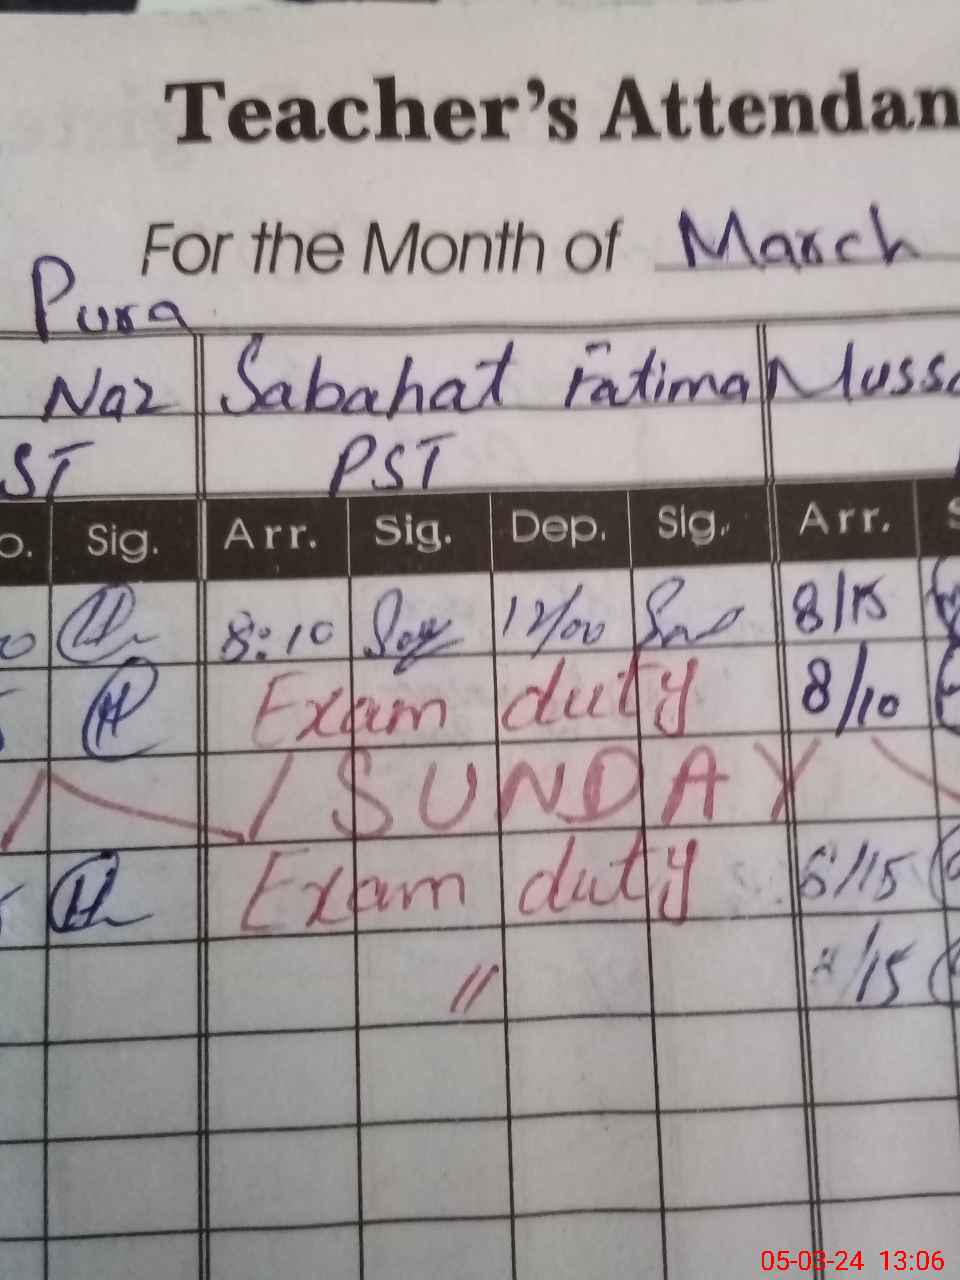 Teacher's Attendan
For the Month of March
Pura
Naz Sabahat Fatima Muss
ST PST
o. Sig. Arr. Sig. Dep. Sig. Arr. S
0 8:10 12/00 8/15
Exam duty 8/10
SUNDAY
Exam duty 8/15
" /15
05-03-24 13:06